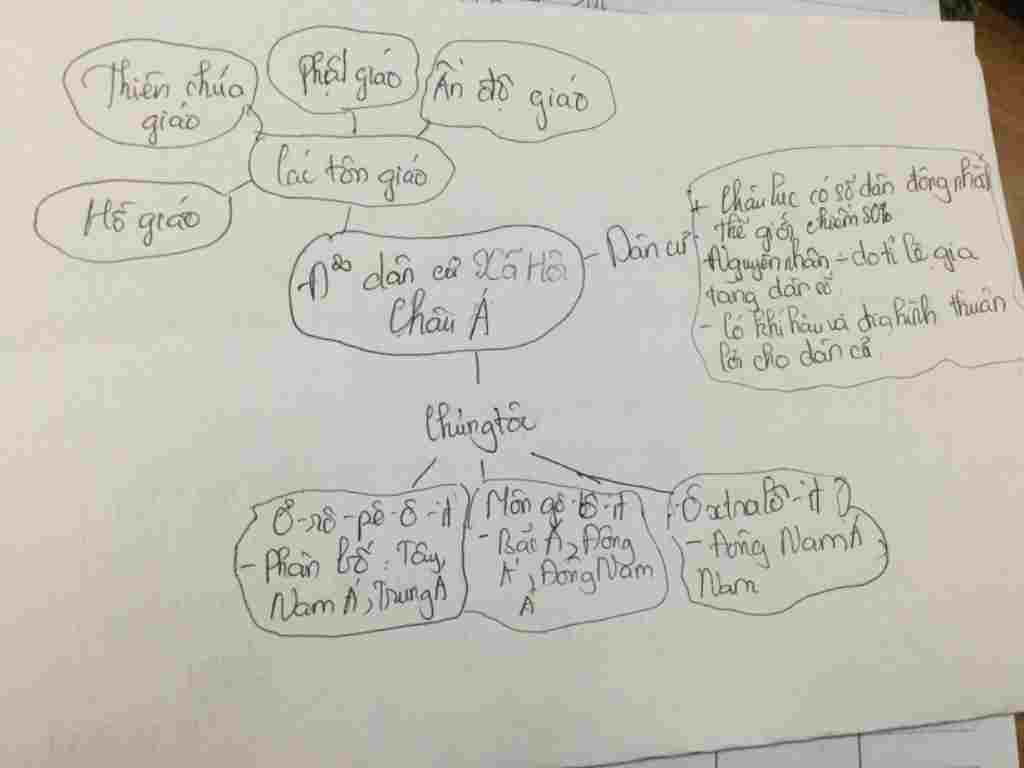 Thiên chúa
giáo
Phật giáo
Ấn độ giáo
Các tôn giáo
Hồ giáo
dân cư Xã Hô
Châu Á
Dân cư
+ Châu lục có số dân đông nhất
thế giới chiếm
- Nguyên nhân - do tỉ lệ gia
tang dân số
- Có khí hậu và địa hình thuân
lời cho dân cư
Chủng tộc
Ơ-rô-pê-ô-it
- Phân bố: Tây,
Nam Á, Trung Á
Môn gô-lô-it
- Bắc Á, Đông
Á, Đông Nam
Á
Ô xtralô-it
- Đông Nam Á
Nam